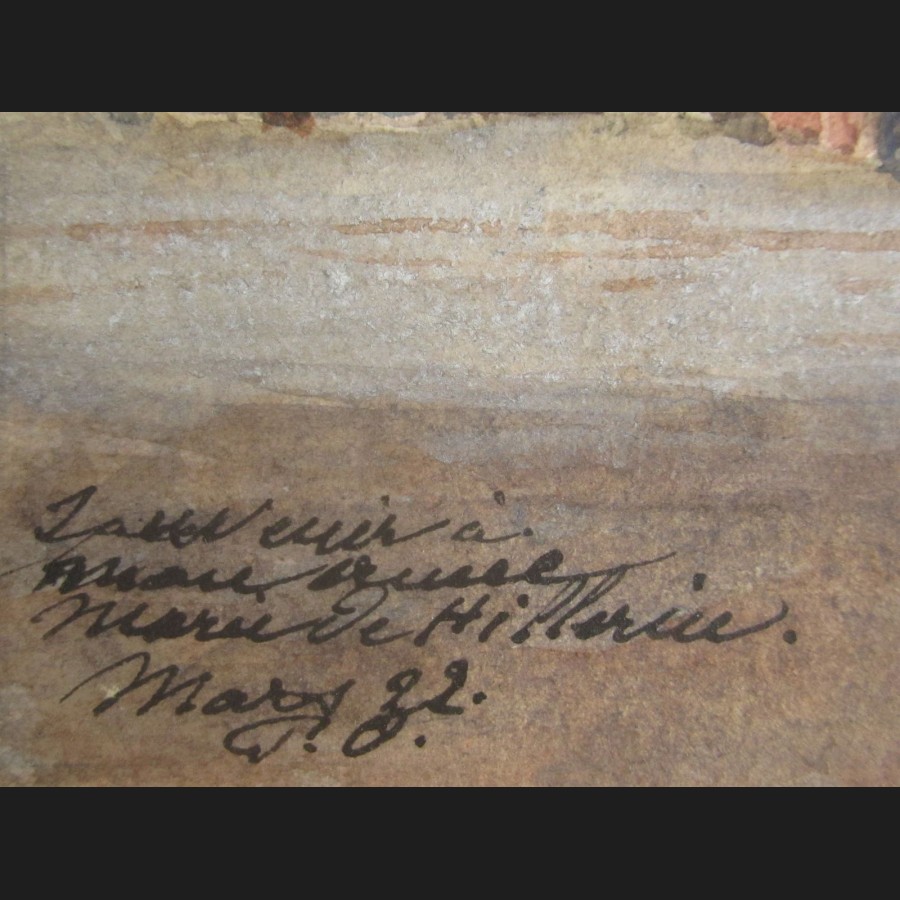 Souvenir à
mon amie
Marie de Hillerin.
Mars 22.